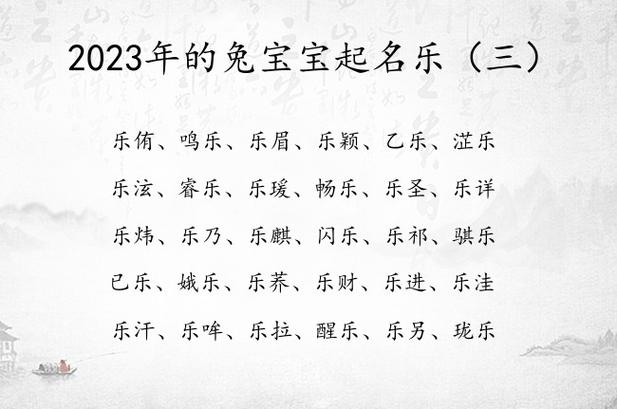 2023年的兔宝宝起名乐（三）
乐侑、鸣乐、乐眉、乐颖、乙乐、涖乐
乐泫、睿乐、乐瑗、畅乐、乐圣、乐详
乐炜、乐乃、乐麒、闪乐、乐祁、骐乐
已乐、娥乐、乐荞、乐财、乐进、乐洼
乐汗、乐哞、乐拉、醒乐、乐另、珑乐